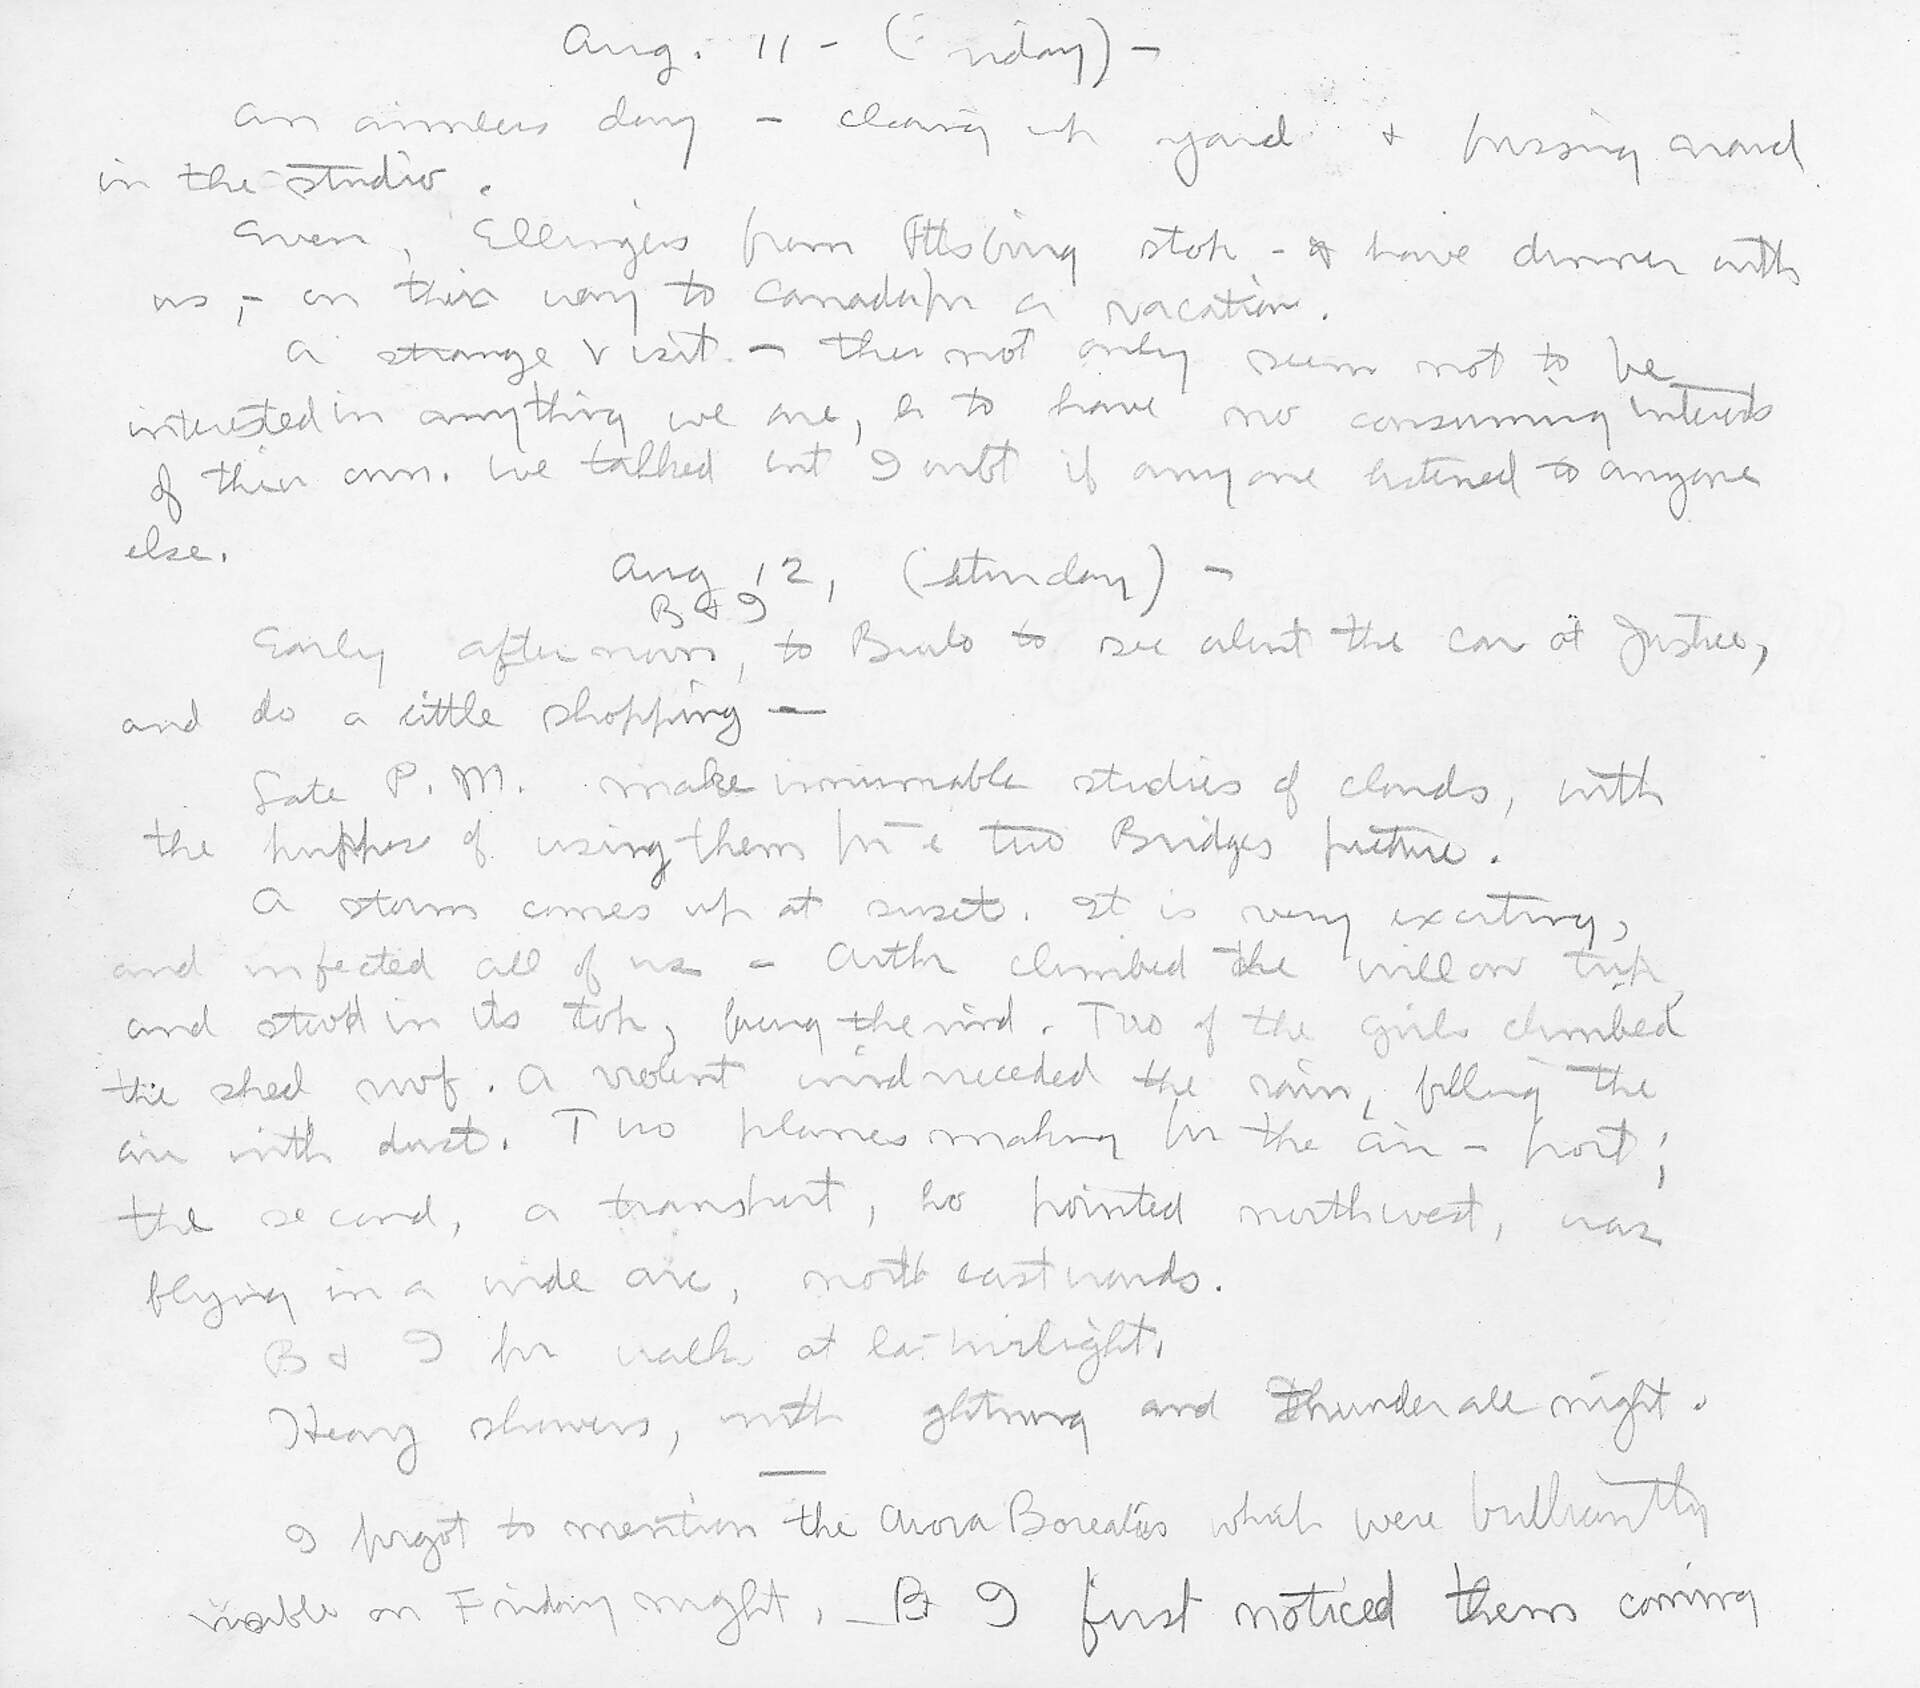 Aug. 11 - (Friday) -
An aimless day - cleaning up yard + fussing around
in the studio.
Even, Ellingers from Pittsburg stop - + have dinner with
us, - on their way to Canada for a vacation.
A strange visit - they not only seem not to be
interested in anything we are, or to have no consuming interests
of their own. We talked but I doubt if anyone listened to anyone
else.
Aug 12, (Saturday) -
B + I
Early afternoon, to Buffalo to see about the car at Justice,
and do a little shopping —
Late P.M. make innumerable studies of clouds, with
the purpose of using them for the Two Bridges picture.
A storm comes up at sunset. It is very exciting,
and infected all of us - Arthur climbed the willow tree,
and stood in its top, facing the wind. Two of the girls climbed
the shed roof. A violent wind preceded the rain, filling the
air with dust. Two planes making for the air-port;
the second, a transport, pointed northwest, was
flying in a wide arc, north eastwards.
B + I for walk at late twilight.
Heavy showers, with lightning and thunder all night.
I forgot to mention the Arora Borealis which were brilliantly
visible on Friday night, — B + I first noticed them coming